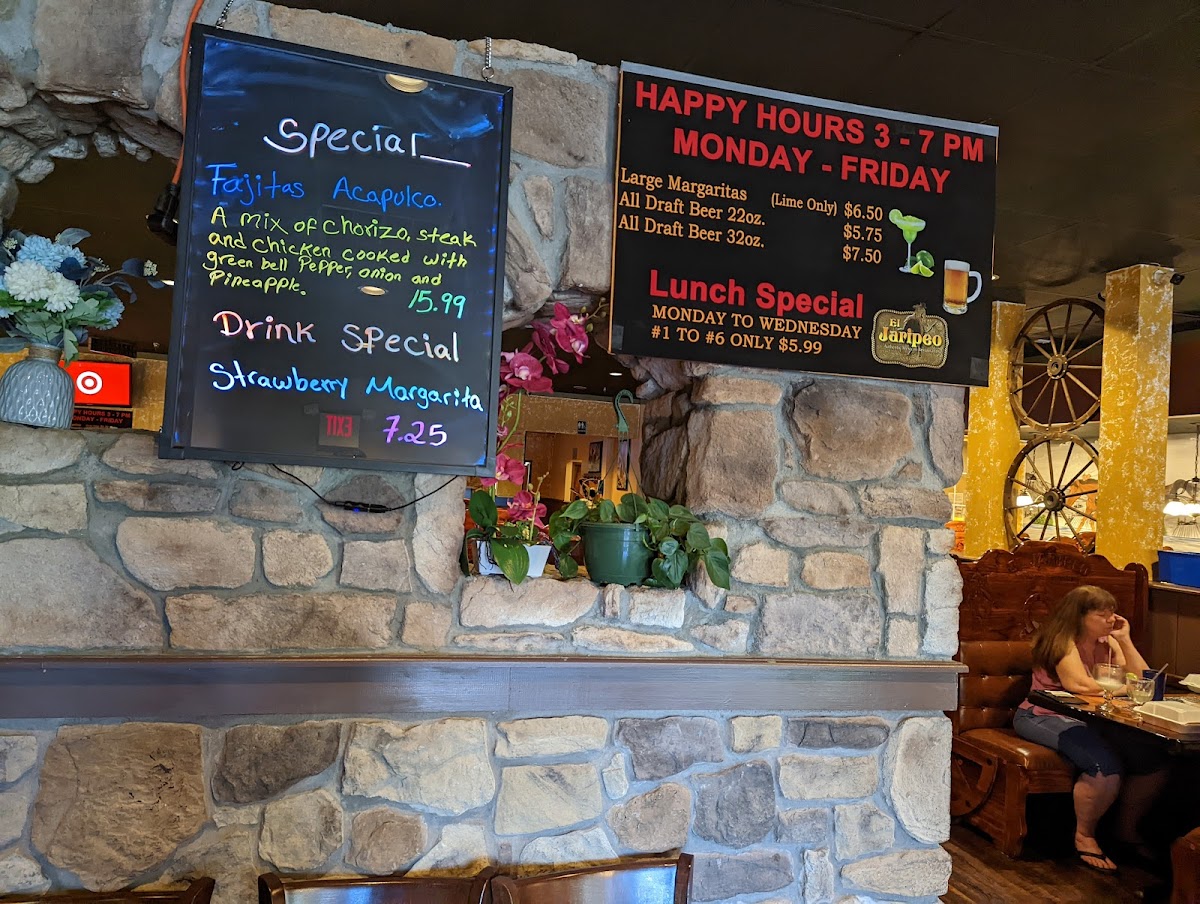 Special
Fajitas Acapulco.
A mix of chorizo, steak
and chicken cooked with
green bell Pepper, onion and
Pineapple.
15.99
Drink Special
Strawberry Margarita
7.25
EXIT
HAPPY HOURS 3 - 7 PM
MONDAY - FRIDAY
Large Margaritas (Lime Only) $6.50
All Draft Beer 22oz. $5.75
All Draft Beer 32oz. $7.50
Lunch Special
MONDAY TO WEDNESDAY
#1 TO #6 ONLY $5.99
El
Jaripeo
HAPPY HOURS 3 - 7 PM
MONDAY - FRIDAY